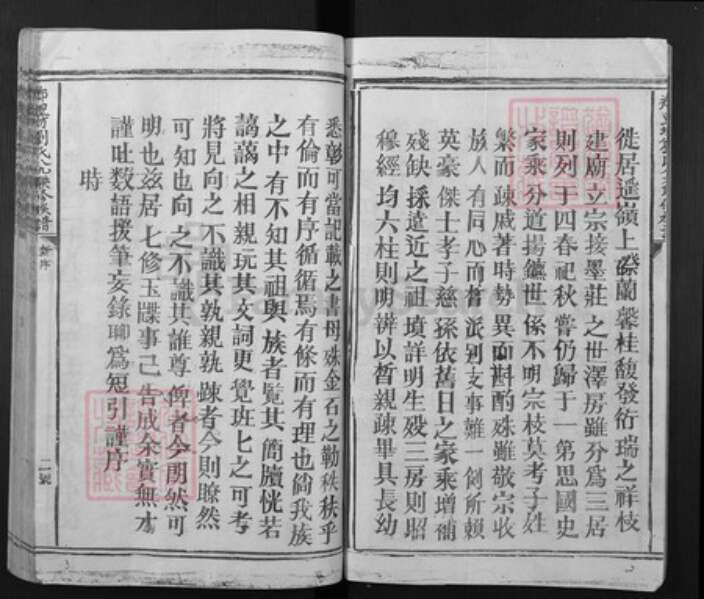 徙居遥嶺上磜蘭馨桂馥發衍瑞之祥枝
建廟立宗接墨莊之世澤房雖分爲三居
則列于四春祀秋嘗仍歸于一第思國史
家乘分道揚鑣世係不明宗枝莫考子姓
繁而疎戚著時勢異而斟酌殊雖敬宗收
族人有同心而皆派别支事難一例所賴
英豪傑士孝子慈孫依舊日之家乘增補
殘缺採遠近之祖墳詳明生殁三房則昭
穆經均六柱則明辨以晢親疎畢具長幼
悉彰可當記載之書毋殊金石之勒秩秩乎
有倫而有序循循焉有條而有理也倘我族
之中有不知其祖與族者覧其簡牘恍若
藹藹之相親玩其文詞更覺班七之可考
將見向之不識其孰親孰疎者今則瞭然
可知也向之不識其誰尊誰卑者今明然可
明也兹居七修玉牒事己告成余實無才
謹吐数語援筆妄錄聊爲短引謹序
時
劉氏
族譜
序
二號